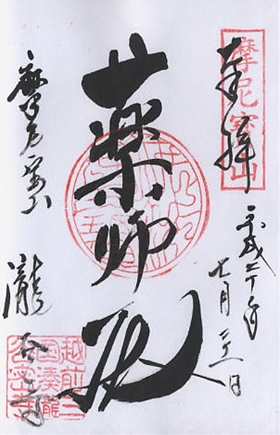 摩尼宝山
奉拝
平成二十年
七月
日
薬師殿
摩尼宝山
瀧谷寺
越前三
国湊瀧